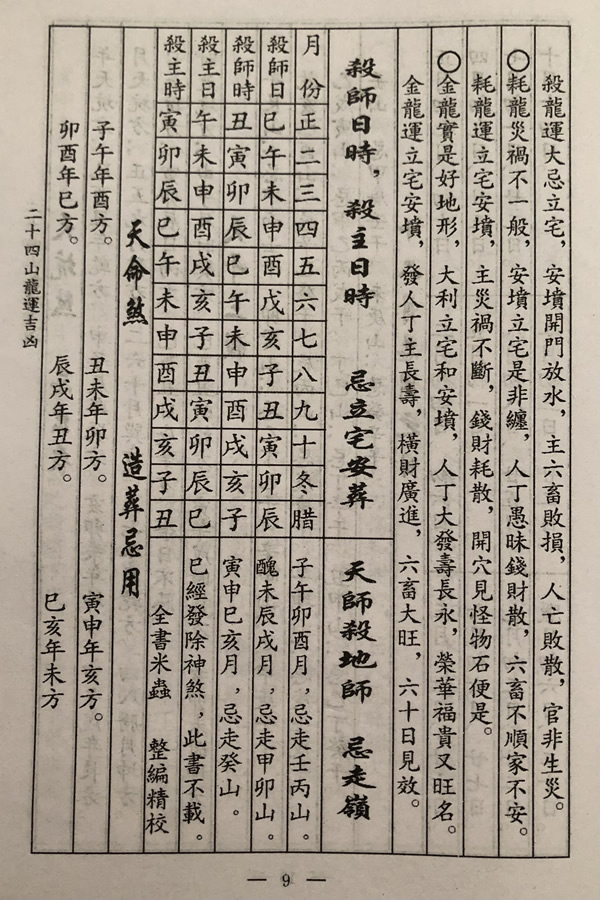 殺龍運大忌立宅，安墳開門放水，主六畜敗損，人亡敗散，官非生災。
○耗龍災禍不一般，安墳立宅是非纏，人丁愚昧錢財散，六畜不順家不安。
耗龍運立宅安墳，主災禍不斷，錢財耗散，開穴見怪物石便是。
○金龍實是好地形，大利立宅和安墳，人丁大發壽長永，榮華福貴又旺名。
金龍運立宅安墳，發人丁主長壽，橫財廣進，六畜大旺，六十日見效。
殺師日時，殺主日時 忌立宅安葬
月份 正 二 三 四 五 六 七 八 九 十 冬 腊
殺師日 巳 午 未 申 酉 戊 亥 子 丑 寅 卯 辰
殺師時 丑 寅 卯 辰 巳 午 未 申 酉 戌 亥 子
殺主日 午 未 申 酉 戌 亥 子 丑 寅 卯 辰 巳
殺主時 寅 卯 辰 巳 午 未 申 酉 戌 亥 子 丑
天師殺地師 忌走嶺
子午卯酉月，忌走壬丙山。
醜未辰戌月，忌走甲卯山。
寅申巳亥月，忌走癸山。
巳經發除神煞，此書不載。
全書米蟲 整編精校
天命煞 造葬忌用
子午年酉方。 丑未年卯方。 寅申年亥方。
卯酉年巳方。 辰戌年丑方。 巳亥年未方
二十四山龍運吉凶
— 9 —